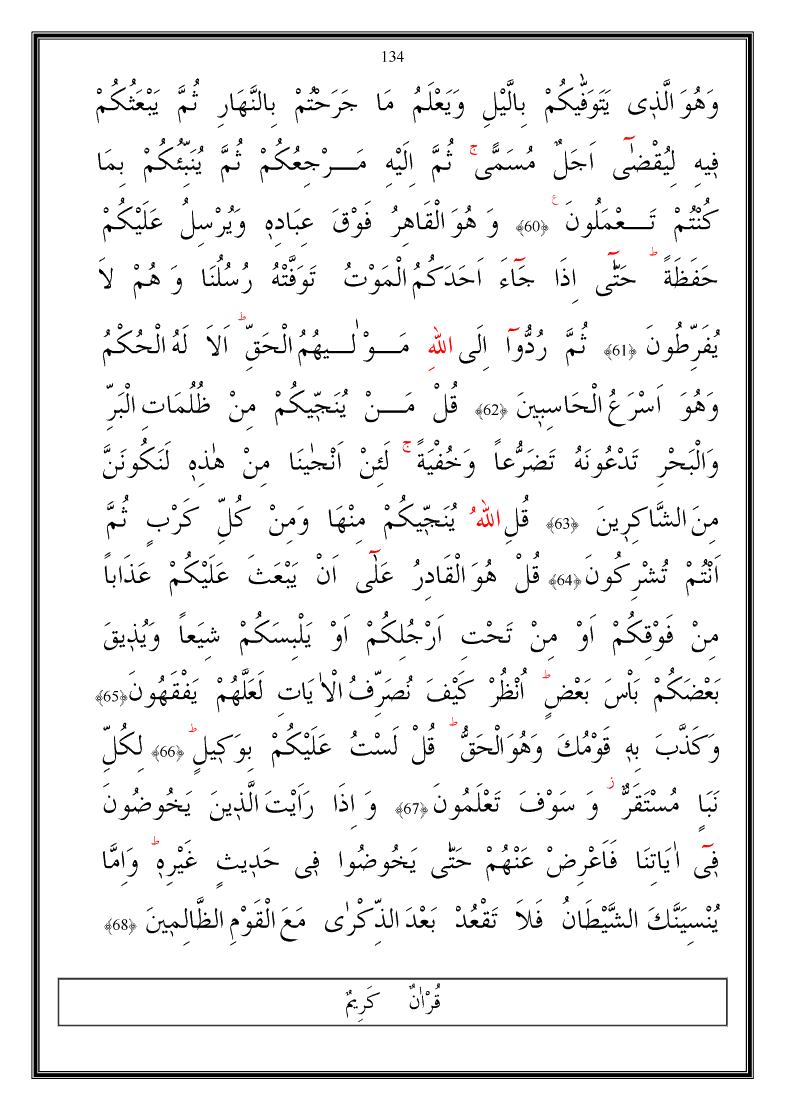 134
وَهُوَ الَّذٖى يَتَوَفّٰيكُمْ بِالَّيْلِ وَيَعْلَمُ مَا جَرَحْتُمْ بِالنَّهَارِ ثُمَّ يَبْعَثُكُمْ
فٖيهِ لِيُقْضٰٓى اَجَلٌ مُسَمًّىۚ ثُمَّ اِلَيْهِ مَـــرْجِعُكُمْ ثُمَّ يُنَبِّئُكُمْ بِمَا
كُنْتُمْ تَـــعْمَلُونَࣖ ﴿60﴾ وَ هُوَ الْقَاهِرُ فَوْقَ عِبَادِهٖ وَيُرْسِلُ عَلَيْكُمْ
حَفَظَةًؕ حَتّٰٓى اِذَا جَٓاءَ اَحَدَكُمُ الْمَوْتُ تَوَفَّتْهُ رُسُلُنَا وَ هُمْ لَا
يُفَرِّطُونَ ﴿61﴾ ثُمَّ رُدُّٓوا اِلَى اللّٰهِ مَـــوْلٰـــيهُمُ الْحَقِّؕ اَلَا لَهُ الْحُكْمُ
وَهُوَ اَسْرَعُ الْحَاسِبٖينَ ﴿62﴾ قُلْ مَـــنْ يُنَجّٖيكُمْ مِنْ ظُلُمَاتِ الْبَرِّ
وَالْبَحْرِ تَدْعُونَهُ تَضَرُّعاً وَخُفْيَةًۚ لَئِنْ اَنْجٰينَا مِنْ هٰذِهٖ لَنَكُونَنَّ
مِنَ الشَّاكِرٖينَ ﴿63﴾ قُلِ اللّٰهُ يُنَجّٖيكُمْ مِنْهَا وَمِنْ كُلِّ كَرْبٍ ثُمَّ
اَنْتُمْ تُشْرِكُونَ ﴿64﴾ قُلْ هُوَ الْقَادِرُ عَلٰٓى اَنْ يَبْعَثَ عَلَيْكُمْ عَذَاباً
مِنْ فَوْقِكُمْ اَوْ مِنْ تَحْتِ اَرْجُلِكُمْ اَوْ يَلْبِسَكُمْ شِيَعاً وَيُذٖيقَ
بَعْضَكُمْ بَاْسَ بَعْضٍؕ اُنْظُرْ كَيْفَ نُصَرِّفُ الْاٰيَاتِ لَعَلَّهُمْ يَفْقَهُونَ ﴿65﴾
وَكَذَّبَ بِهٖ قَوْمُكَ وَهُوَ الْحَقُّؕ قُلْ لَسْتُ عَلَيْكُمْ بِوَكٖيلٍؕ ﴿66﴾ لِكُلِّ
نَبَاٍ مُسْتَقَرٌّؗ وَ سَوْفَ تَعْلَمُونَ ﴿67﴾ وَ اِذَا رَاَيْتَ الَّذٖينَ يَخُوضُونَ
فٖٓى اٰيَاتِنَا فَاَعْرِضْ عَنْهُمْ حَتّٰى يَخُوضُوا فٖى حَدٖيثٍ غَيْرِهٖؕ وَاِمَّا
يُنْسِيَنَّكَ الشَّيْطَانُ فَلَا تَقْعُدْ بَعْدَ الذِّكْرٰى مَعَ الْقَوْمِ الظَّالِمٖينَ ﴿68﴾
قُرْاٰنٌ كَرِيمٌ